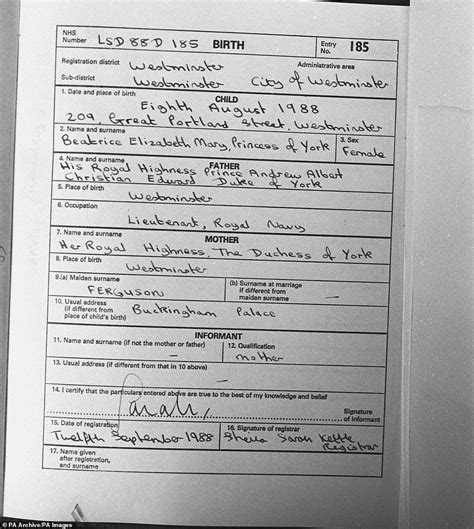 NHS Number LSD 88D 185 BIRTH Entry No. 185
Registration district Westminster Administrative area
Sub-district Westminster City of Westminster
1. Date and place of birth CHILD
Eighth August 1988
209, Great Portland Street, Westminster
2. Name and surname 3. Sex
Beatrice Elizabeth Mary, Princess of York Female
4. Name and surname FATHER
His Royal Highness Prince Andrew Albert
Christian Edward Duke of York
5. Place of birth
Westminster
6. Occupation
Lieutenant, Royal Navy
7. Name and surname MOTHER
Her Royal Highness The Duchess of York
8. Place of birth
Westminster
9.(a) Maiden surname (b) Surname at marriage if different from maiden surname
FERGUSON —
10. Usual address (if different from place of child's birth) Buckingham Palace
INFORMANT
11. Name and surname (if not the mother or father) 12. Qualification
— mother
13. Usual address (if different from that in 10 above)
—
14. I certify that the particulars entered above are true to the best of my knowledge and belief
Sarah, Signature of informant
15. Date of registration 16. Signature of registrar
Twelfth September 1988 Sheila Sarah Kettle
Registrar
17. Name given after registration, and surname —
© PA Archive/PA Images